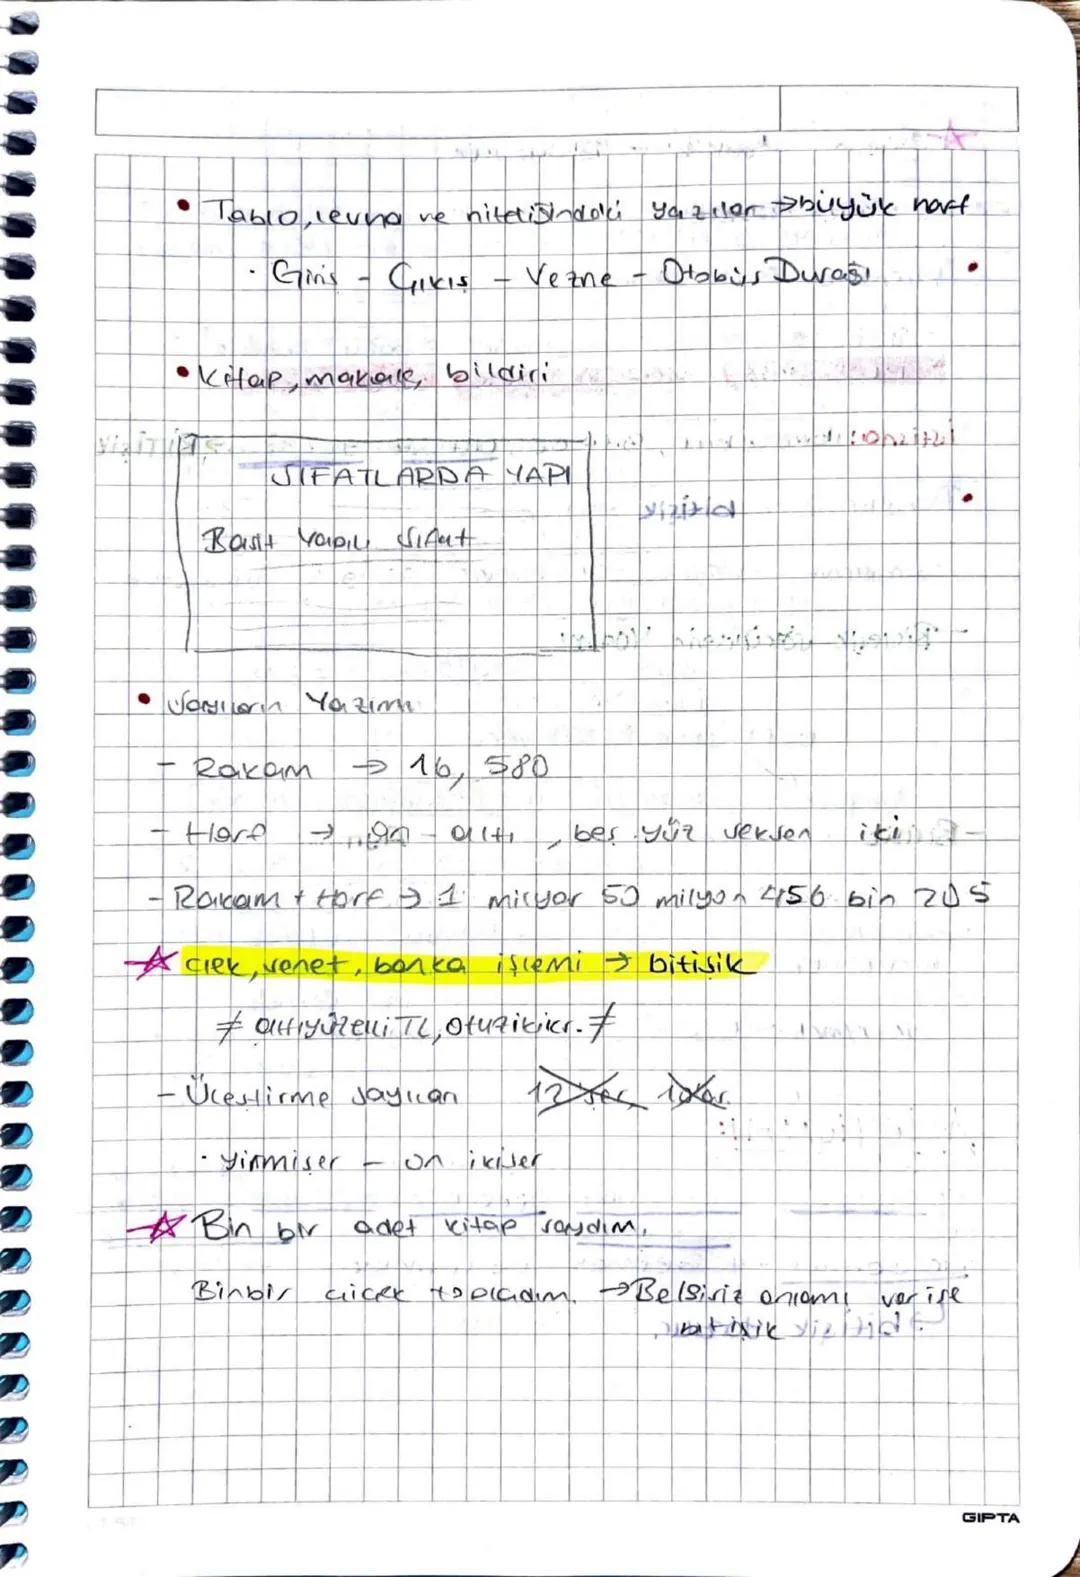 • Tablo, levha ve niteliğindeki yazılar → büyük harf
· Giriş - Çıkış - Vezne - Otobüs Durağı
• Kitap, makale, bildiri
SIFATLARDA YAPI
Basit Yapılı Sıfat
• Sayıların Yazımı
- Rakam → 16, 580
- Harf → on altı, beş yüz seksen iki
- Rakam + Harf → 1 milyar 50 milyon 456 bin 205
☆ çek, senet, banka işlemi → bitişik
≠ altıyüzelli TL, otuzikikr. ≠
- Üleştirme sayıları 12'şer, 10'ar
· yirmişer - on ikişer
☆ Bin bir adet kitap saydım.
Binbir çiçek topladım. → Belgisiz anlamı var ise
bitişik
GIPTA